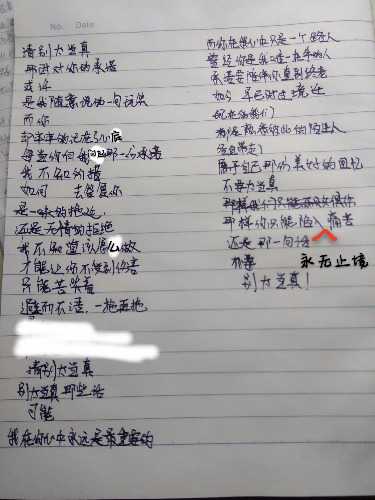 No. Date
请别太当真
那进对你的承诺
或许
是我随意说的一句玩笑
而你
却牢牢的记在心底
每当你向我那一份承诺
我不知所措
如何 去答复你
是一味的拖延
还是无情的拒绝
我不知道该怎么做
才能让你不受到伤害
只能苦笑着
避而不语,一拖再拖
请别太当真
别太当真那些话
可能
我在你心中永远是最重要的
而你在我心中只是一个路人
曾经你是我唯一在乎的人
承诺要陪伴你直到终老
如今 早已时过境迁
现在的我们
都是熟悉彼此的陌生人
各自带走了
属于自己那份美好的回忆
不要太当真
那样你只能陷入痛苦
永无止境
还是那一句话
别太当真!